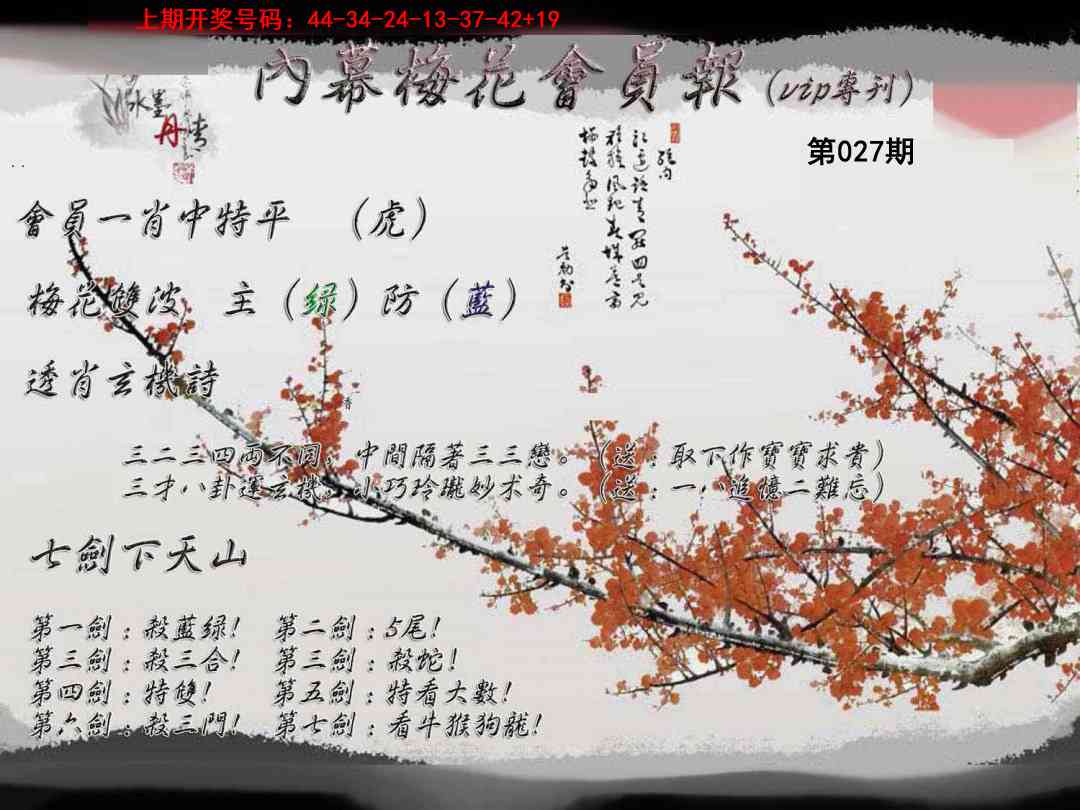 上期开奖号码：44-34-24-13-37-42+19
內幕梅花會員報（vip專刊）
水墨
丹青
第027期
會員一肖中特平　（虎）
梅花雙波　主（绿）防（藍）
透肖玄機詩
香
三二三四两不同，中間隔著三三戀。（送：取下作寶寶求貴）
三才八卦運玄機，小巧玲瓏妙术奇。（送：一八追憶二難忘）
七劍下天山
第一劍：殺藍绿！　第二劍：5尾！
第三劍：殺三合！　第三劍：殺蛇！
第四劍：特雙！　第五劍：特看大數！
第六劍：殺三門！　第七劍：看牛猴狗龍！